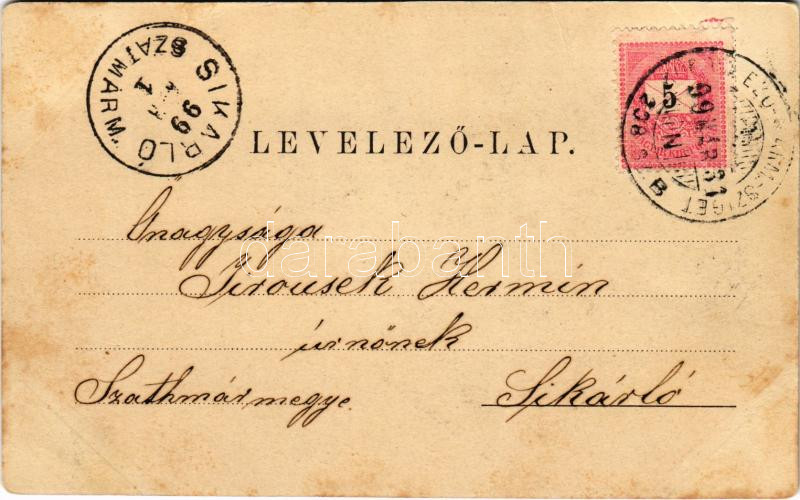 SIKÁRLÓ
SZATMÁR M.
99
LEVELEZŐ-LAP.
5
99 MÁR 31
B
Őnagysága
Jirousek Hermin
úrnőnek
Szathmármegye.
Sikárló
darabanth